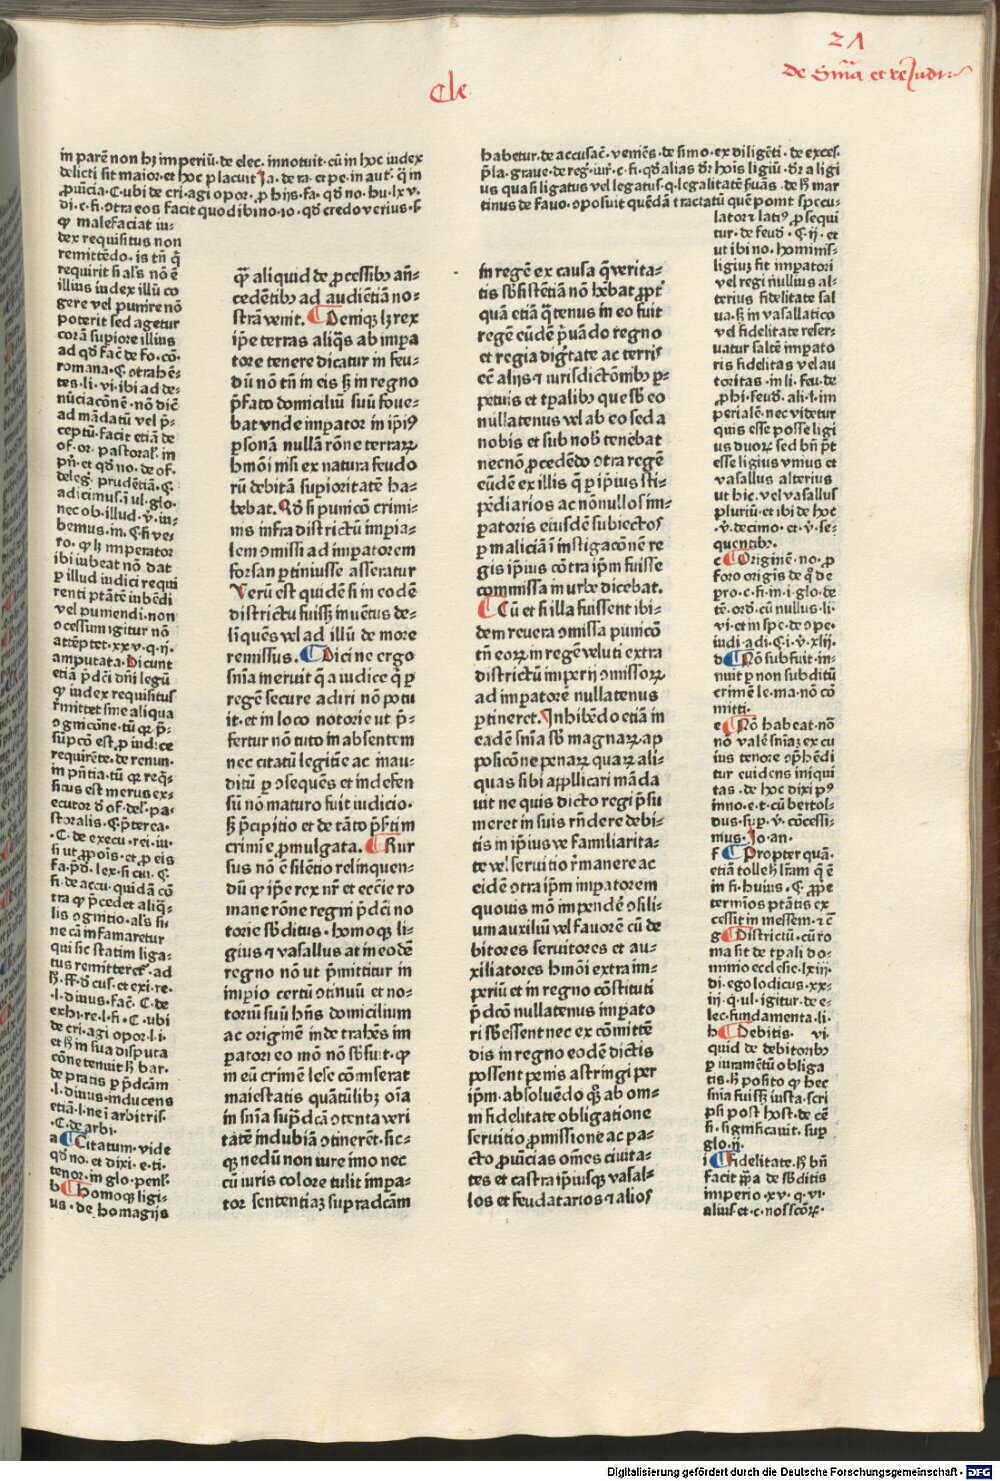 21
de Sn̄ia et re Judi
Cle
in parē non hꝫ imperiū. de elec. innotuit. cū in hoc iudex
delicti sit maior. et hoc placuit Ja. de ra. et pe. in aut. q̄ in
ꝓuīcia. C. vbi de cri. agi opor.
di. c. fi. ↄtra eos facit quod ibi no. io. qd̄ credo verius. s
ꝙ malefaciat iu-
dex requisitus non
remittēdo. is tn̄ q̄
requirit si als̄ nō ē
illius iudex illū co
gere vel punire nō
poterit sed agetur
corā supiore illius
ad qd̄ fac̄ de fo. cō.
romana. ¶ ↄtra hē-
tes. li. vi. ibi ad de-
nūciacōnē. nō dic̄
ad mādatū vel p̄-
ceptū. facit etiā de
of. or. pastoral. in
pn̄. et qd̄ no. de of.
deleg. prudētiā. ¶.
adicimus. i ul. glo.
nec ob. illud. v̄. iu-
bemus. in. ¶ si ve-
ro. ꝙ hꝫ imperator
ibi iubeat nō dat
ꝑ illud iudici requi
renti ptātē iubēdi
vel puniendi. non
ↄcessum igitur nō
attēptet. xxv. q. ij.
amputata. Dicunt
etiā p̄dc̄i dn̄i legū
ꝙ iudex requisitus
r̄mittet sine aliqua
ↄgnicōne. tū qꝛ p̄-
supcō est. ꝓ iudice
requirēte. de renun.
in pn̄tia. tū qꝛ req̄-
situs est merus ex-
ecutor d̄ of. del. pa-
storalis. ¶ p̄terea.
. C. de execu. rei. iu.
fi. de accu. quidā cō
tra ꝙ p̄cedet aliq̄-
lis ↄgnitio. als̄ si-
ne cā infamaretur
qui sic statim liga-
tus remitteret. ad
. l. diuus. fac̄. C. de
exhi. re. l. fi. C. vbi
de cri. agi opor. l. i.
et hꝫ in sua disputa
cōne tenuit hꝫ bar.
de pratis ꝑ p̄dcām
. l. diuus. inducens
etiā. l. ne ī arbitris.
. C. de arbi.
a ¶ Citatum. vide
qd̄ no. et dixi. e. ti.
tenor. in glo. penl.
b ¶ Homoqꝫ ligi-
us. de homagijs
qꝫ aliquid de ꝓcessibꝫ añ-
cedētibꝫ ad audiētiā no-
strā venit. ¶ Deniqꝫ lꝫ rex
ip̄e terras aliq̄s ab impa
tore tenere dicatur in feu-
dū nō tn̄ in eis sꝫ in regno
p̄fato domiciliū suū foue-
bat vnde impator in ip̄iꝰ
ꝑsonā nullā rōne terraꝝ
hmōi nisi ex natura feudo
rū debitā supioritatē ha-
bebat. Qd̄ si punicō crimi-
nis infra districtū impia-
lem ↄmissi ad impatorem
forsan ꝑtiniusse asseratur
Verū est quidē si in eodē
districtu fuissꝫ inuētus de-
liquēs vel ad illū de more
remissus. ¶ Dici ne ergo
sn̄ia meruit q̄ a iudice q̄ ꝑ
regē secure adiri nō potu
it. et in loco notorie ut p̄-
fertur nō tuto in absentem
nec citatū legitīe ac inau-
ditū ꝑ ↄsequēs et indefen
sū nō maturo fuit iudicio.
sꝫ p̄cipitio et de tāto p̄sertim
crimīe ꝓmulgata. ¶ Rur
sus nō ē silētio relinquen-
dū ꝙ ip̄e rex nr̄ et eccie ro
mane rōne regni p̄dc̄i no
torie sb̄ditus. homoqꝫ li-
gius ⁊ vasallus at in eodē
regno nō ut p̄mittitur in
impio certū ↄtinuū et no-
toriū suū hn̄s domicilium
ac originē inde trahēs im
patori eo mō nō sb̄fuit. ꝙ
in eū crimē lese cōmiserat
maiestatis quātūlibꝫ oīa
in sn̄ia sup̄dcā ↄtenta veri
tatē indubiā ↄtinerēt. sic-
qꝫ nedū non iure imo nec
cū iuris colore tulit impa-
tor sententiaꝫ supradcām
habetur. de accusac̄. veniēs. de simo. ex diligēti. de exces.
p̄la. graue. de reg. iur̄. c. fi. qd̄ alias dr̄ hoīs ligiū. dr̄ a ligi
us quasi ligatus vel legatus. q. legalitatē fuās. de hꝫ mar
tinus de fauo. ↄposuit quēdā tractatū quē ponit specu-
in regē ex causa q̄ verita-
tis sb̄sistētiā nō hēbat ꝓpt̄
quā etiā q̄tenus in eo fuit
regē eūdē p̄uādo regno
et regia dignitate ac terris
cē alijs ⁊ iurisdictōnibꝫ ꝑ-
petuis et tꝑalibꝫ que sb̄ eo
nullatenus vel ab eo sed a
nobis et sub nob̄ tenebat
necnō ꝓcedēdo ↄtra regē
eūdē ex illis q̄ ꝑ ip̄ius sti-
pēdiarios ac nōnullos im-
patoris eiusdē subiectos
ꝑ maliciā ī instigacōnē re
gis ip̄ius cōtra ip̄m fuisse
commissa in urbe dicebat.
¶ Cū et si illa fuissent ibi-
dem reuera ↄmissa punicō
tn̄ eoꝝ in regē veluti extra
districtū imperij ↄmissoꝝ
ad impatorē nullatenus
ꝑtineret. Inhibēdo etiā in
eadē sn̄ia sb̄ magnaꝝ ap
posicōne penaꝝ quaꝝ ali-
quas sibi applicari māda
uit ne quis dicto regi p̄su
meret in suis rn̄dere debi-
tis in ip̄ius ve familiarita-
te vel seruitio r̄manere ac
eidē ↄtra ip̄m impatorem
quouis mō impendē ↄsili-
um auxiliū vel fauorē cū de
bitores seruitores et au-
xiliatores hmōi extra im-
periū et in regno cōstituti
p̄dcō nullatenus impato
ri sb̄essent nec ex cōmittē
dis in regno eodē dictis
possent penis astringi per
ip̄m. absoluēdo qꝫ ab om-
ni fidelitate obligatione
seruitio ꝓmissione ac pa-
cto ꝓuīcias om̄es ciuita-
tes et castra ip̄iusqꝫ vasal-
los et feudatarios ⁊ alios
lator ⁊ latiꝰ ꝓsequi
tur. de feud. ¶ ij. et
ut ibi no. hominis-
ligius sit impatori
vel regi nullius al-
terius fidelitate sal
ua. sꝫ in vasallatico
vel fidelitate reser-
uatur saltē impato
ris fidelitas vel au
toritas. in li. feu. de
ꝓhi. feud. ali. l. im
perialē. nec videtur
quis esse posse ligi
us duoꝝ sed bn̄ pt̄
esse ligius vnius et
vasallus alterius
ut hic. vel vasallus
pluriū. et ibi de hoc
. v̄. decimo. et. v̄. se-
quentibꝫ.
c ¶ Originē. no. ꝓ
foro origis de q̄ de
pro. c. fi. in. i. glo. de
tē. ord. cū nullus. li.
vi. et in spe. de ↄpe.
iudi. adi. ¶ i. v̄. xlij.
d ¶ Nō subfuit. in-
nuit ꝑ non subditū
crimē le. ma. nō cō
mitti.
e ¶ Nō habeat. nō
nō valē sn̄iaꝫ ex cu
ius tenore ↄp̄hēdi
tur euidens iniqui
tas. de hoc dixi pꝰ
inno. e. t. cū bertol-
dus. sup. v̄. cōcessi-
mus. Jo. an.
f ¶ Propter quā.
etiā tollē hꝫ lr̄am q̄ ē
in fi. huius. ¶ ꝓpe
termīos ptātis ex
cessit in messem. ⁊ c̄
g ¶ Districtū. cū ro
ma sit de tꝑali do-
minio ecclesie. lxiij.
di. ego lodicus. xx-
iij. q. ul. igitur. de e-
lec. fundamenta. li.
h ¶ Debitis. vi.
quid de debitoribꝫ
ꝑ iuramētū obliga
tis. hꝫ posito ꝙ hec
sn̄ia fuissꝫ iusta. scri
psi post host. de cē
si. significauit. sup
glo. ij.
i ¶ fidelitate. hꝫ bn̄
facit p̄pa de sb̄ditis
imperio. xv. q. vi.
alius et. c. nos scōr̄.
Digitalisierung gefördert durch die Deutsche Forschungsgemeinschaft - DFG